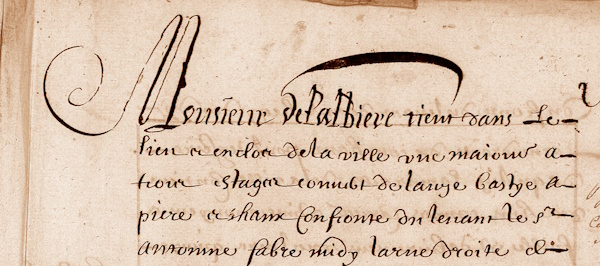 Monsieur de la Biere tient dans le
lieu et enclos de la ville une maison a
trois estages couvert de lauze bastye a
piere et chaux Confronte du levant le sr
antoinne fabre midy la rue droite et